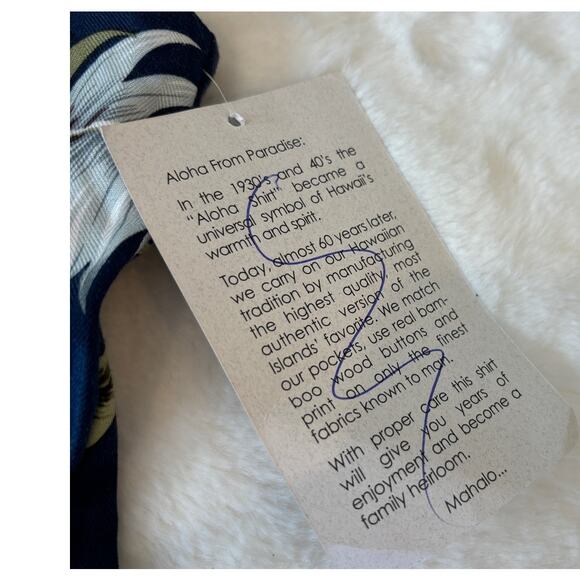 Aloha From Paradise:
In the 1930's and 40's the
"Aloha Shirt" became a
universal symbol of Hawaii's
warmth and spirit.
Today, almost 60 years later,
we carry on our Hawaiian
tradition by manufacturing
the highest quality, most
authentic version of the
Islands' favorite. We match
our pockets, use real bam-
boo wood buttons and
print on only the finest
fabrics known to man.
With proper care this shirt
will give you years of
enjoyment and become a
family heirloom.
Mahalo...